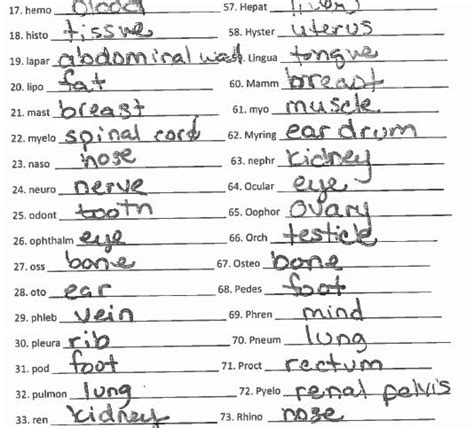 17. hemo blood 57. Hepat liver
18. histo tissue 58. Hyster uterus
19. lapar abdominal wall 59. Lingua tongue
20. lipo fat 60. Mamm breast
21. mast breast 61. myo muscle
22. myelo spinal cord 62. Myring ear drum
23. naso nose 63. nephr kidney
24. neuro nerve 64. Ocular eye
25. odont tooth 65. Oophor ovary
26. ophthalm eye 66. Orch testicle
27. oss bone 67. Osteo bone
28. oto ear 68. Pedes foot
29. phleb vein 69. Phren mind
30. pleura rib 70. Pneum lung
31. pod foot 71. Proct rectum
32. pulmon lung 72. Pyelo renal pelvis
33. ren kidney 73. Rhino nose